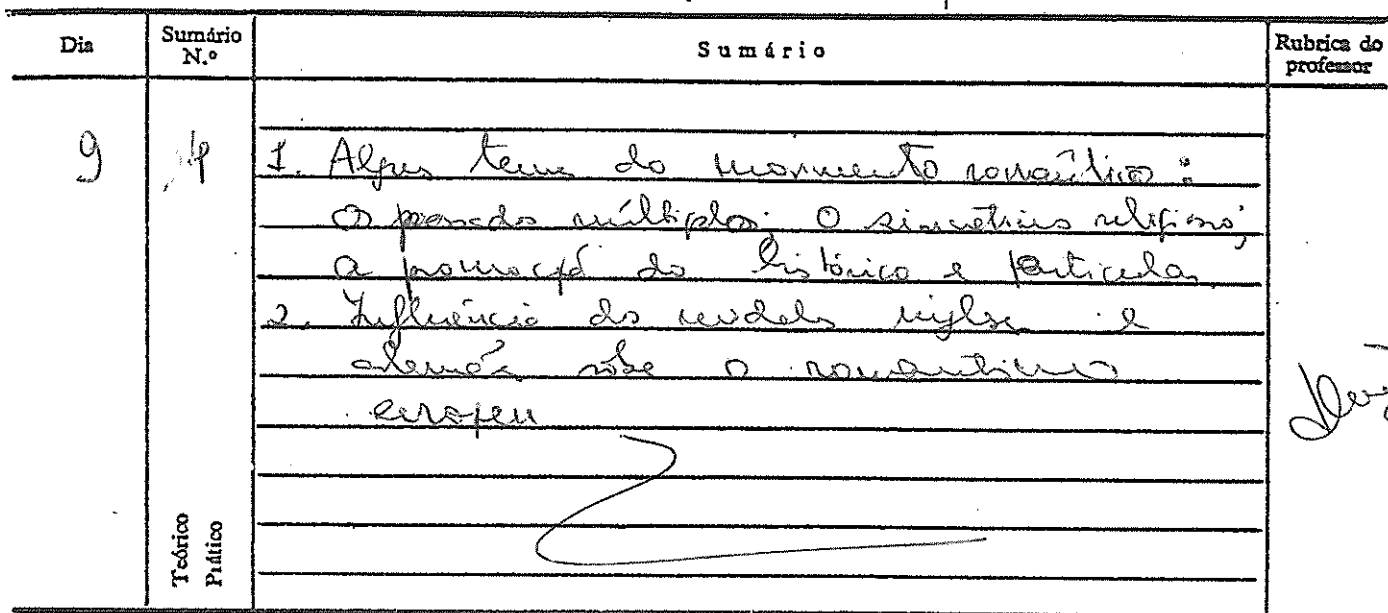 Dia Sumário N.º Sumário Rubrica do professor
9 4 1. Alguns temas do movimento romântico:
O passado múltiplo; O sincretismo religioso;
a promoção do histórico e particular
2. Influência do modelo inglês e
alemão sôbe o romantismo
europeu
Teórico
Prático